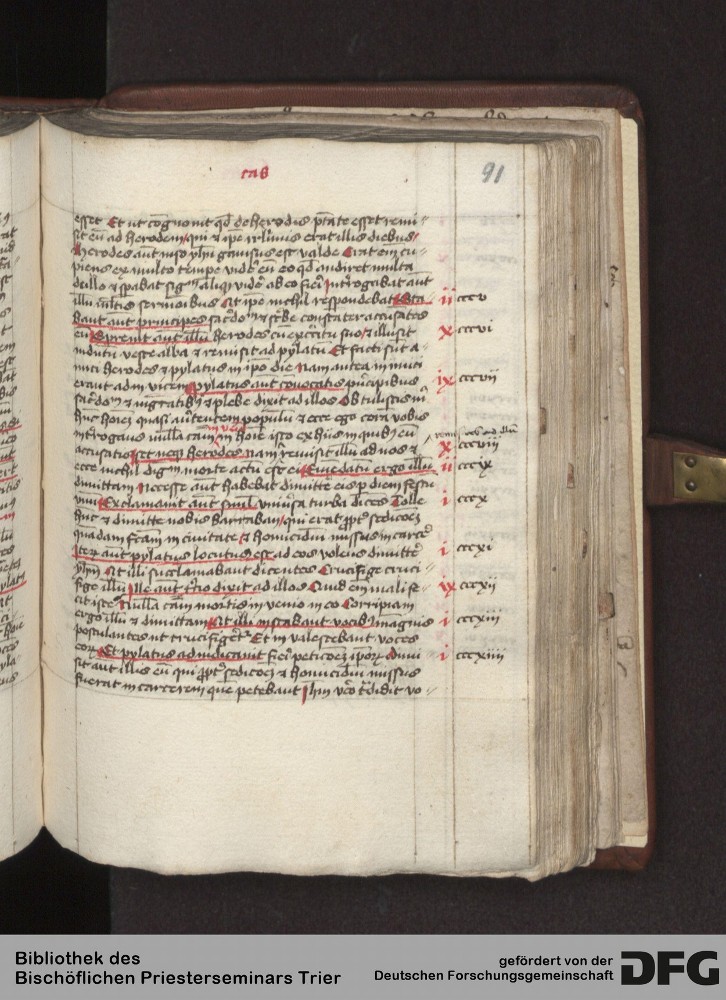 cas
91
esset Et ut cognouit qd de herodis ptate esset remi-
sit eu ad herodem qui et ipe irlimis erat illis diebus
Herodes aut uiso yhu gauisus est valde Erat em cu-
piens ex multo tempe vide eu eo qd audiret multa
de illo et spabat sign aliqd vide ab eo fieri Introgabat aut
illu multis sermoibus At ipe nichil respondebat Sta
bant aut principes sacdom et scribe constater accusates
eu Spreuit aut illu herodes cu exercitu suo et illusit
indutu veste alba et remisit ad pylatu Et facti sut a-
mici herodes et pylatus in ipo die Nam antea inimici
erant ad in vicem Pylatus aut couocatis pncipibus
sacdom et magratibus et plebe dixit ad illos Obtulistis m
huc hoiem quasi autentem populu et ecce ego cora vobis
introgans nulla cam in hoie isto ex hiis in quibus eu
accusatis Set neqz herodes nam remisit illu ad nos et
ecce nichil dignu morte actu est ei Emedatu ergo illu
dimittam Necesse aut habebat dimitte eis p diem festu
unu Exclamauit aut siml uniuersa turba dices Tolle
huc et dimitte nobis barraban qui erat ppt sedicoez
quadam fcam in ciuitate et homicidiu missus in carce
Iter aut pylatus locutus est ad eos volens dimitte
yhm At illi succlamabant dicentes Crucifige cruci-
fige illu Ille aut tcio dixit ad illos Quid em mali fe-
cit iste Nulla cam mortis in uenio in eo Corripiam
ergo illu et dimittam At illi instabant vocibus magnis
postulantes ut crucifiget Et in valescebant voces
eoz Et pylatus adiudicauit fieri peticoez ipoz Dimi
sit aut illis eu qui ppt sedicoez et homicidiu missus
fuerat in carcerem que petebant Ihm vo tdidit vo-
ii cccv
x cccvi
ix cccvii
x cccviii
ii cccix
i cccx
i cccxi
ix cccxii
i cccxiii
i cccxiiii
Bibliothek des
Bischöflichen Priesterseminars Trier
gefördert von der
Deutschen Forschungsgemeinschaft
DFG